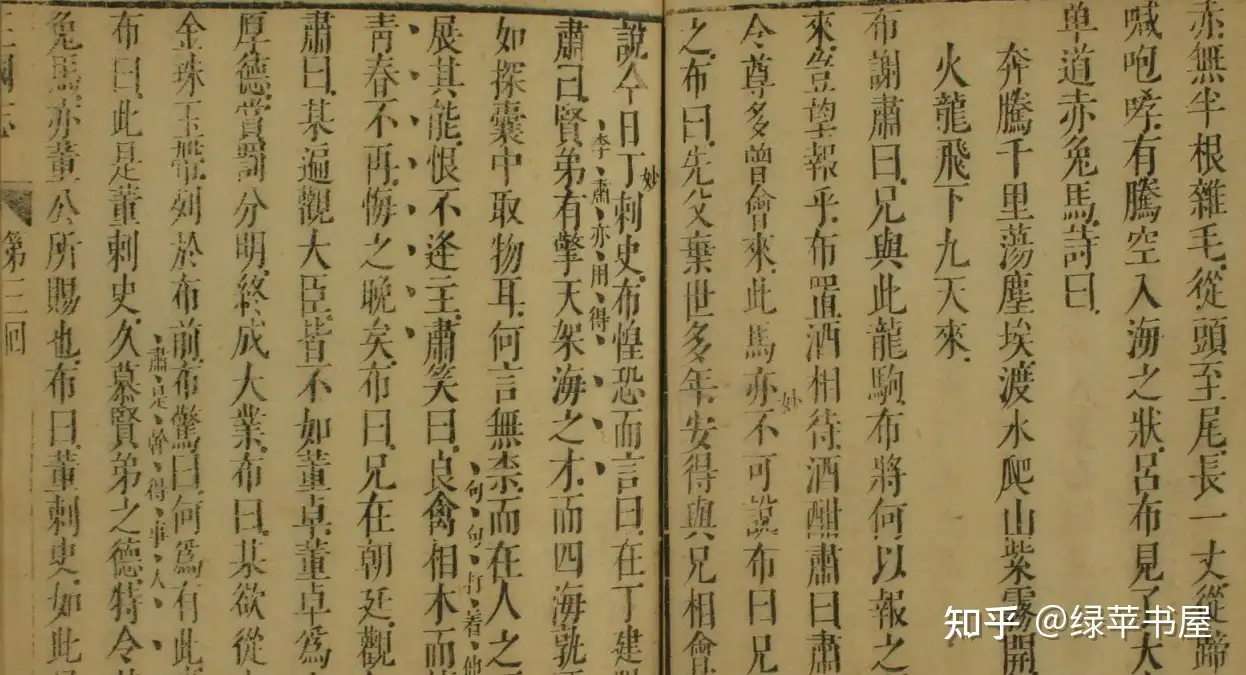 赤無半根雜毛從頭至尾長一丈從蹄
喊咆哮有騰空入海之狀呂布見了大
单道赤兔馬詩曰
奔騰千里蕩塵埃渡水爬山紫霧開
火龍飛下九天來
布謝肅曰兄與此龍駒布將何以報之
來豈望報乎布置酒相待酒酣肅曰肅
今尊多曾會來此馬亦不可説布曰兄
妙
之布曰先父棄世多年安得與兄相會
說今日丁刺史布惶恐而言曰在丁建
妙
李肅亦用得
肅曰賢弟有擎天架海之才而四海孰
如探囊中取物耳何言無柰而在人之
句句打着他
展其能恨不逢主肅笑曰良禽相木而
青春不再悔之晚矣布曰兄在朝廷觀
肅曰某遍觀大臣皆不如董卓董卓爲
厚德賞罰分明終成大業布曰某欲從
金珠玉帶列於布前布驚曰何爲有此
肅是幹得事人
布曰此是董刺史久慕賢弟之德特令
兔馬亦董公所賜也布曰董刺史如此
三國志 第三回
知乎 @绿苹书屋